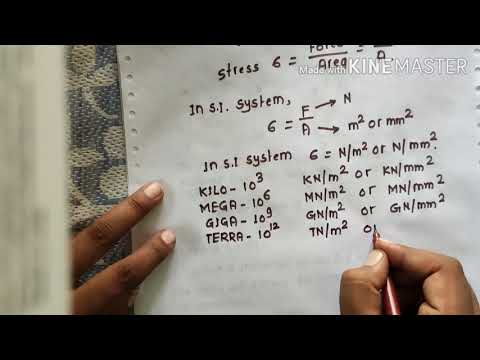 Stress σ = Force/Area =
A
Made with KINEMASTER
In S.I. System,
σ = F/A → N
→ m² or mm²
In S.I System σ = N/m² or N/mm².
KILO - 10³ KN/m² or KN/mm²
MEGA - 10⁶ MN/m² or MN/mm²
GIGA - 10⁹ GN/m² or GN/mm²
TERRA - 10¹² TN/m² or